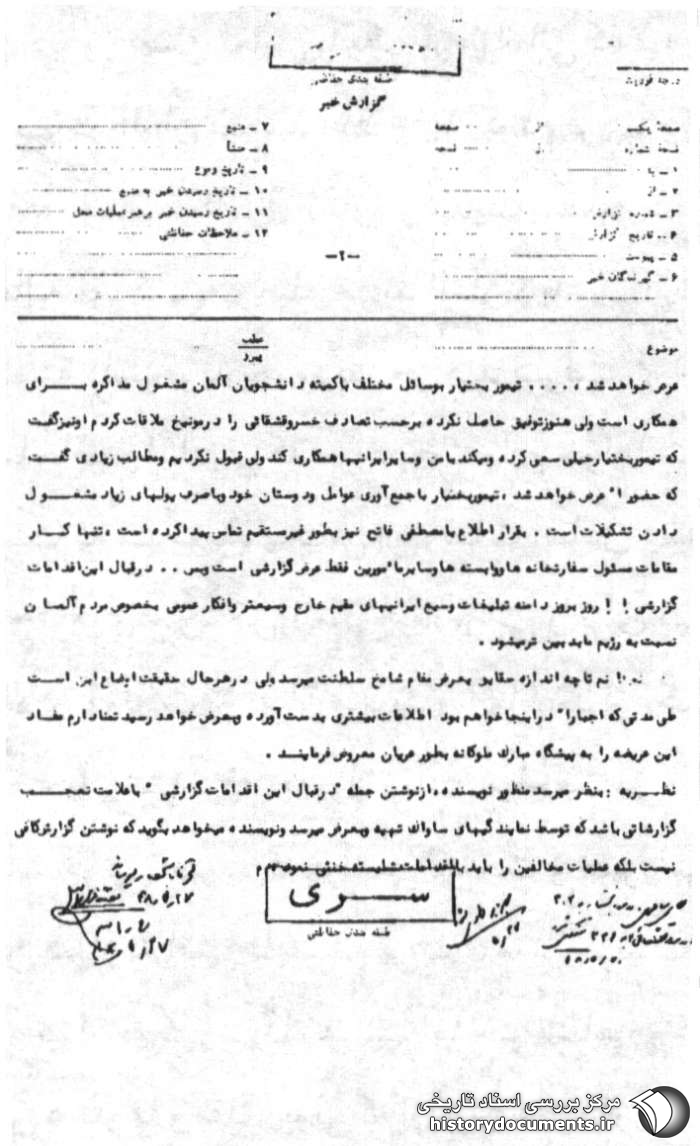 طبقه بندی حفاظتی
درجه فوریت
گزارش خبر
صفحه یکم از صفحه
نسخه شماره از نسخه
۱ ـ به
۲ ـ از
۳ ـ شماره گزارش
۴ ـ تاریخ گزارش
۵ ـ پیوست
۶ ـ گیرندگان خبر
۷ ـ منبع
۸ ـ منشأ
۹ ـ تاریخ وقوع
۱۰ ـ تاریخ رسیدن خبر به منبع
۱۱ ـ تاریخ رسیدن خبر برهبر عملیات محل
۱۲ ـ ملاحظات حفاظتی
ـ۲ـ
موضوع
عطف
پیرو
عرض خواهد شد ، .... تیمور بختیار بوسائل مختلف باکمیته دانشجویان آلمان مشغول مذاکره برای
همکاری است ولی هنوز توفیق حاصل نکرده برحسب تصادف خسرو قشقائی را درمونیخ ملاقات کردم اونیز گفت
که تیمور بختیار خیلی سعی کرده ومیکند بامن وسایر ایرانیها همکاری کند ولی قبول نکردیم ومطالب زیادی گفت
که حضورا" عرض خواهد شد ، تیموربختیار با جمع آوری عوامل ودوستان خود وباصرف پولهای زیاد مشغول
دادن تشکیلات است . بقرار اطلاع بامصطفی فاتح نیز بطور غیرمستقیم تماس پیدا کرده است ، تنها کار
مقامات مسئول سفارتخانه ها ووابسته ها وسایر مامورین فقط عرض گزارشی است وبس .. درقبال این اقدامات
گزارشی ! ! روز بروز دامنه تبلیغات وسیع ایرانیهای مقیم خارج وسیعتر وافکار عمومی بخصوص مردم آلمان
نسبت به رژیم ماید بین ترمیشود .
نم تاچه اندازه حقایق بعرض مقام شامخ سلطنت میرسد ولی درهرحال حقیقت اوضاع این است
طی مدتی که اجبارا" دراینجا خواهم بود اطلاعات بیشتری بدست آورده وبعرض خواهد رسید تمنادارم مفاد
این عریضه را به پیشگاه مبارک ملوکانه بطور عریان معروض فرمایند .
نظریه : بنظر میرسد منظور نویسنده ، از نوشتن جمله "درقبال این اقدامات گزارشی " باعلامت تعجب
گزارشاتی باشد که توسط نمایندگیهای ساواک تهیه وبعرض میرسد ونویسنده میخواهد بگوید که نوشتن گزارش کافی
نیست بلکه عملیات مخالفین را باید با اقدامات شایسته خنثی نمود
سری
طبقه بندی حفاظتی
مرکز بررسی اسناد تاریخی
historydocuments.ir